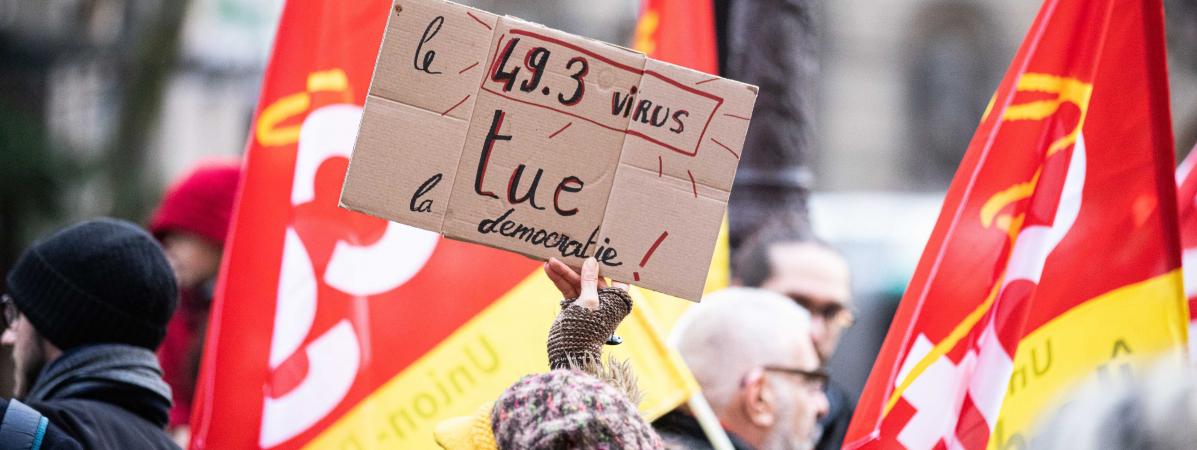 le 49.3 virus
tue
la démocratie !
Union
Un